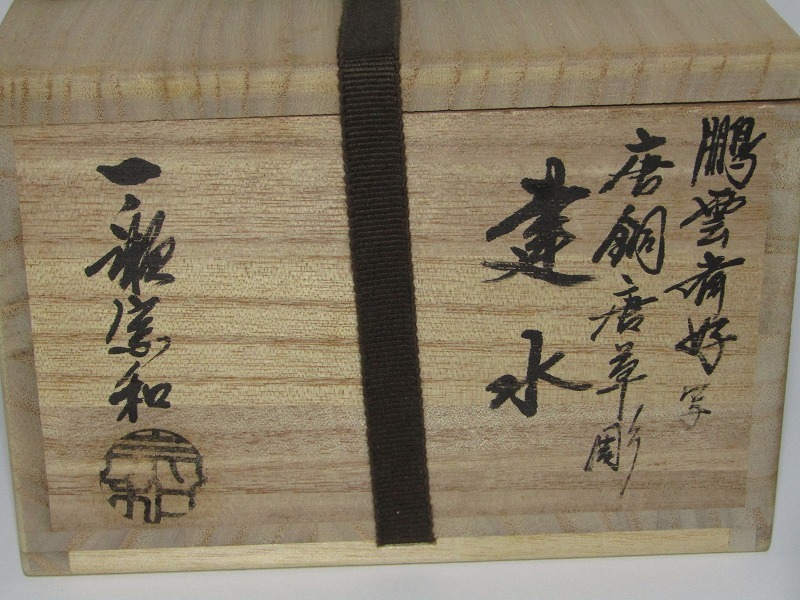 鵬雲斎好写
唐銅唐草彫
建水
一ノ瀬宗和
宗和